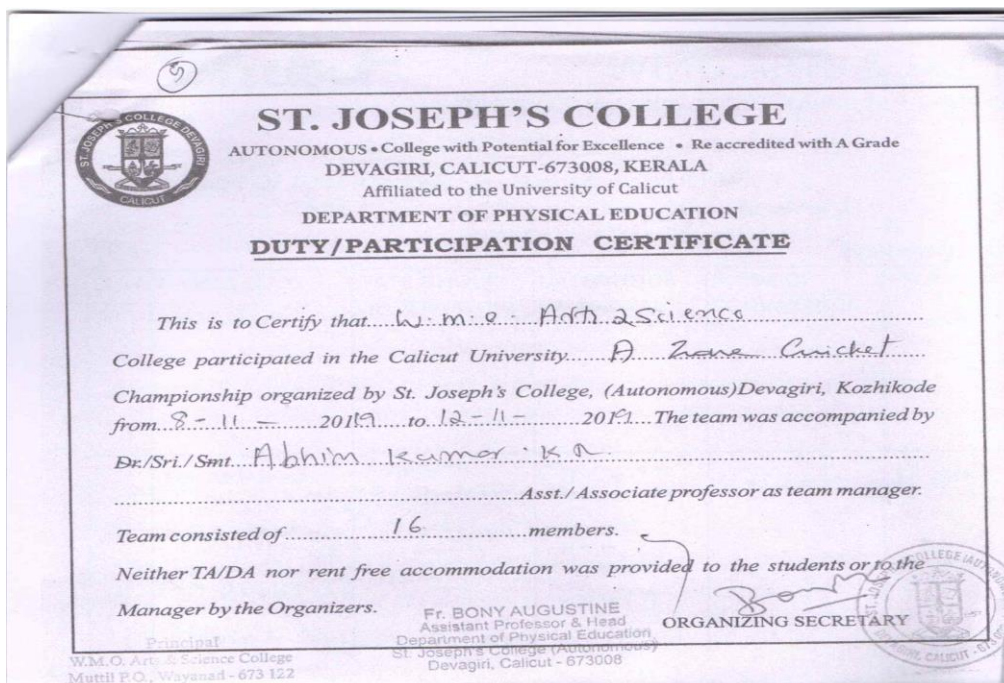 5
ST. JOSEPH'S COLLEGE DEVAGIRI
CALICUT
ST. JOSEPH'S COLLEGE
AUTONOMOUS • College with Potential for Excellence • Re accredited with A Grade
DEVAGIRI, CALICUT-673008, KERALA
Affiliated to the University of Calicut
DEPARTMENT OF PHYSICAL EDUCATION
DUTY/PARTICIPATION CERTIFICATE
This is to Certify that....W.m.o. Arts & Science
College participated in the Calicut University.....A Zone Cricket
Championship organized by St. Joseph's College, (Autonomous)Devagiri, Kozhikode
from..8-11- 2019 to 12-11- 2019 The team was accompanied by
Dr./Sri./Smt. Abhin Kumar. K
Asst./ Associate professor as team manager.
Team consisted of 16 members.
Neither TA/DA nor rent free accommodation was provided to the students or to the
Manager by the Organizers.
Bony
ORGANIZING SECRETARY
Fr. BONY AUGUSTINE
Assistant Professor & Head
Department of Physical Education
St. Joseph's College (Autonomous)
Devagiri, Calicut - 673008
Principal
W.M.O. Arts & Science College
Muttil P.O., Wayanad - 673 122